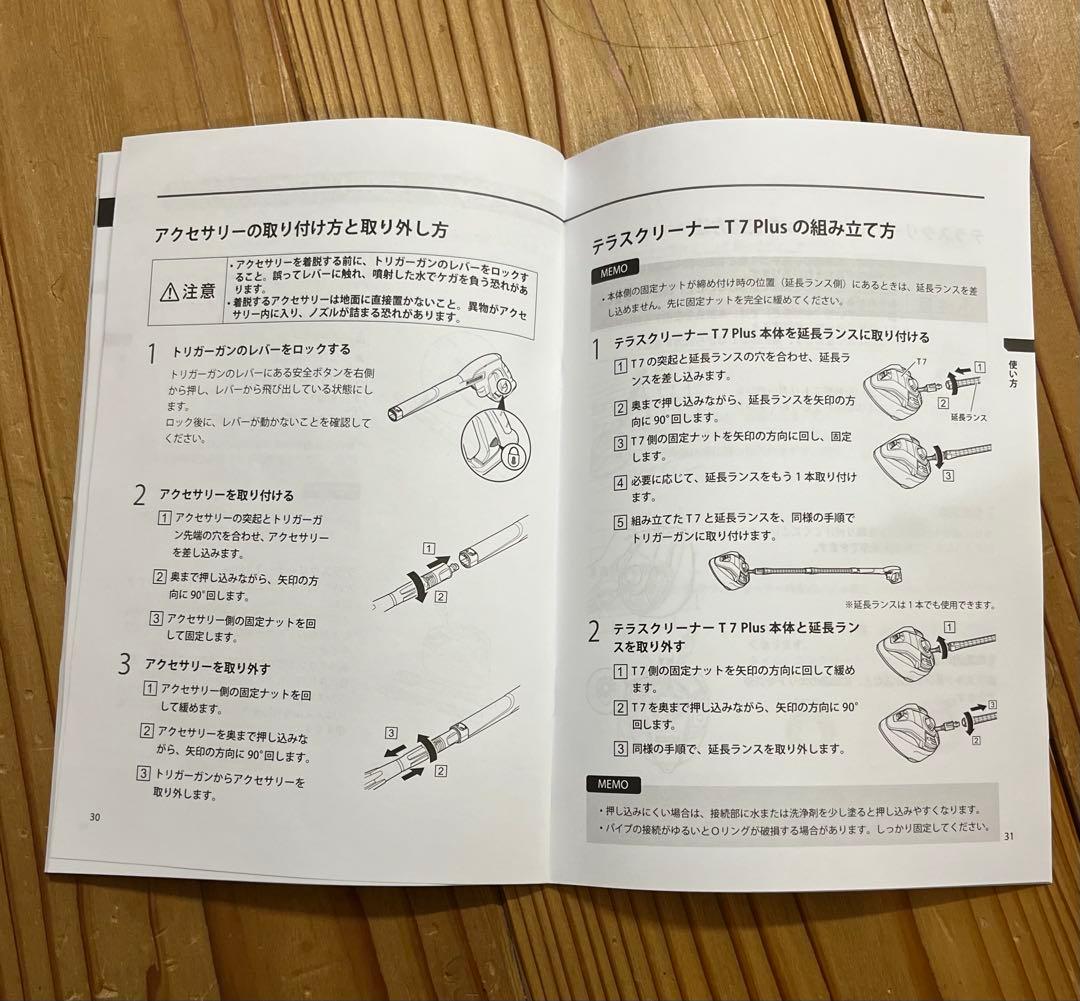 アクセサリーの取り付け方と取り外し方
注意
・アクセサリーを着脱する前に、トリガーガンのレバーをロックす
ること。誤ってレバーに触れ、噴射した水でケガを負う恐れがあ
ります。
・着脱するアクセサリーは地面に直接置かないこと。異物がアクセ
サリー内に入り、ノズルが詰まる恐れがあります。
1 トリガーガンのレバーをロックする
トリガーガンのレバーにある安全ボタンを右側
から押し、レバーから飛び出している状態にし
ます。
ロック後に、レバーが動かないことを確認して
ください。
2 アクセサリーを取り付ける
1 アクセサリーの突起とトリガーガ
ン先端の穴を合わせ、アクセサリー
を差し込みます。
2 奥まで押し込みながら、矢印の方
向に90°回します。
3 アクセサリー側の固定ナットを回
して固定します。
1
2
3 アクセサリーを取り外す
1 アクセサリー側の固定ナットを回
して緩めます。
2 アクセサリーを奥まで押し込みな
がら、矢印の方向に90°回します。
3 トリガーガンからアクセサリーを
取り外します。
3
2
30
テラスクリーナー T 7 Plus の組み立て方
MEMO
・本体側の固定ナットが締め付け時の位置（延長ランス側）にあるときは、延長ランスを差
し込めません。先に固定ナットを完全に緩めてください。
1 テラスクリーナー T 7 Plus 本体を延長ランスに取り付ける
1 T 7 の突起と延長ランスの穴を合わせ、延長ラ
ンスを差し込みます。
2 奥まで押し込みながら、延長ランスを矢印の方
向に 90°回します。
3 T 7 側の固定ナットを矢印の方向に回し、固定
します。
4 必要に応じて、延長ランスをもう 1 本取り付け
ます。
5 組み立てた T 7 と延長ランスを、同様の手順で
トリガーガンに取り付けます。
T7
1
2
延長ランス
3
※延長ランスは 1 本でも使用できます。
2 テラスクリーナー T 7 Plus 本体と延長ラン
スを取り外す
1 T 7 側の固定ナットを矢印の方向に回して緩め
ます。
2 T 7 を奥まで押し込みながら、矢印の方向に 90°
回します。
3 同様の手順で、延長ランスを取り外します。
1
3
2
MEMO
・押し込みにくい場合は、接続部に水または洗浄剤を少し塗ると押し込みやすくなります。
・パイプの接続がゆるいとOリングが破損する場合があります。しっかり固定してください。
使い方
31